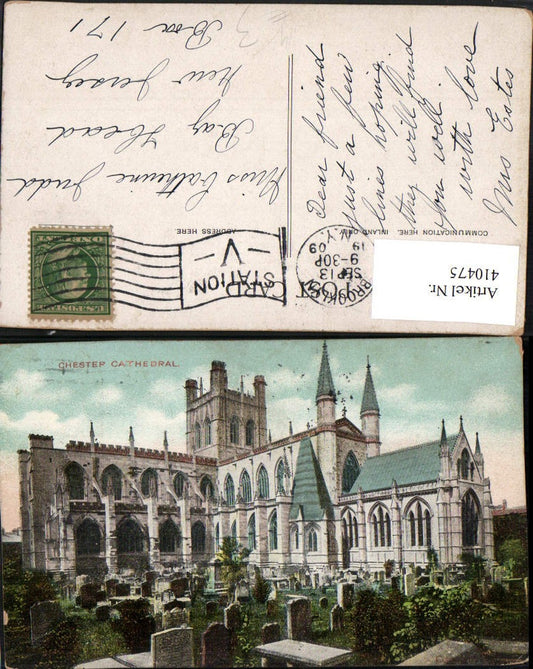 POST CARD
COMMUNICATION HERE. INLAND ONLY.
ADDRESS HERE.
Dear friend
Just a few
lines hoping
they will find
you well
with love
Mrs Estes
Miss Catherine Judd
Bay Head
New Jersey
Box 171
SEP 13
9-30P
09
N.Y.
STATION
V
Artikel Nr.
410475
CHESTER CATHEDRAL.